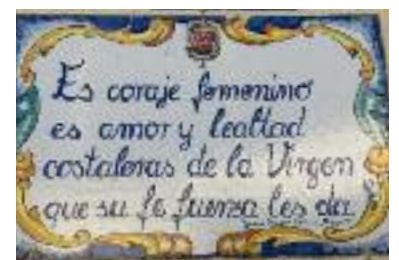 Es coraje femenino
es amor y lealtad
costaleras de la Virgen
que su fe fuerza les da